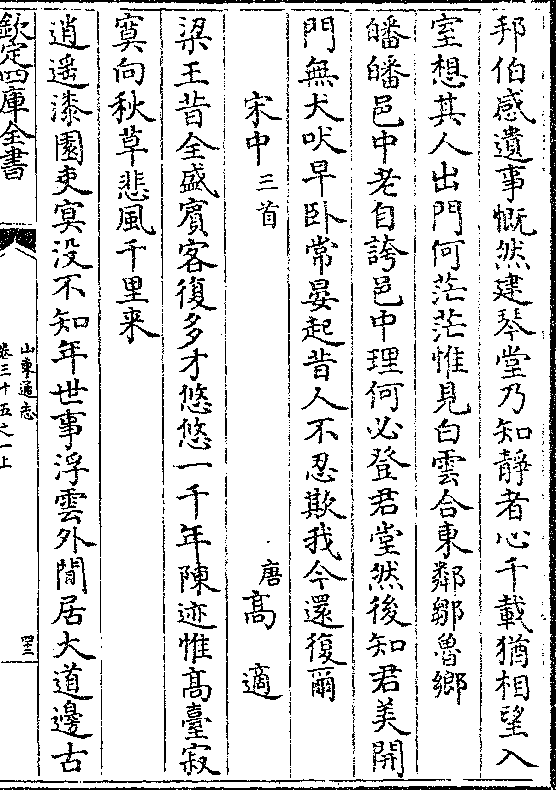 邦伯感遺事慨然建琴堂乃知靜者心千載猶相望入
室想其人出門何茫茫惟見白雲合東鄰鄒魯鄉
皤皤邑中老自誇邑中理何必登君堂然後知君美開
門無犬吠早卧常晏起昔人不忍欺我今還復爾
宋中三首 唐高適
梁王昔全盛賓客復多才悠悠一千年陳迹惟高臺寂
寞向秋草悲風千里來
逍遥漆園吏㝠没不知年世事浮雲外閒居大道邊古
欽定四庫全書
山東通志
卷三十五之一上
四三